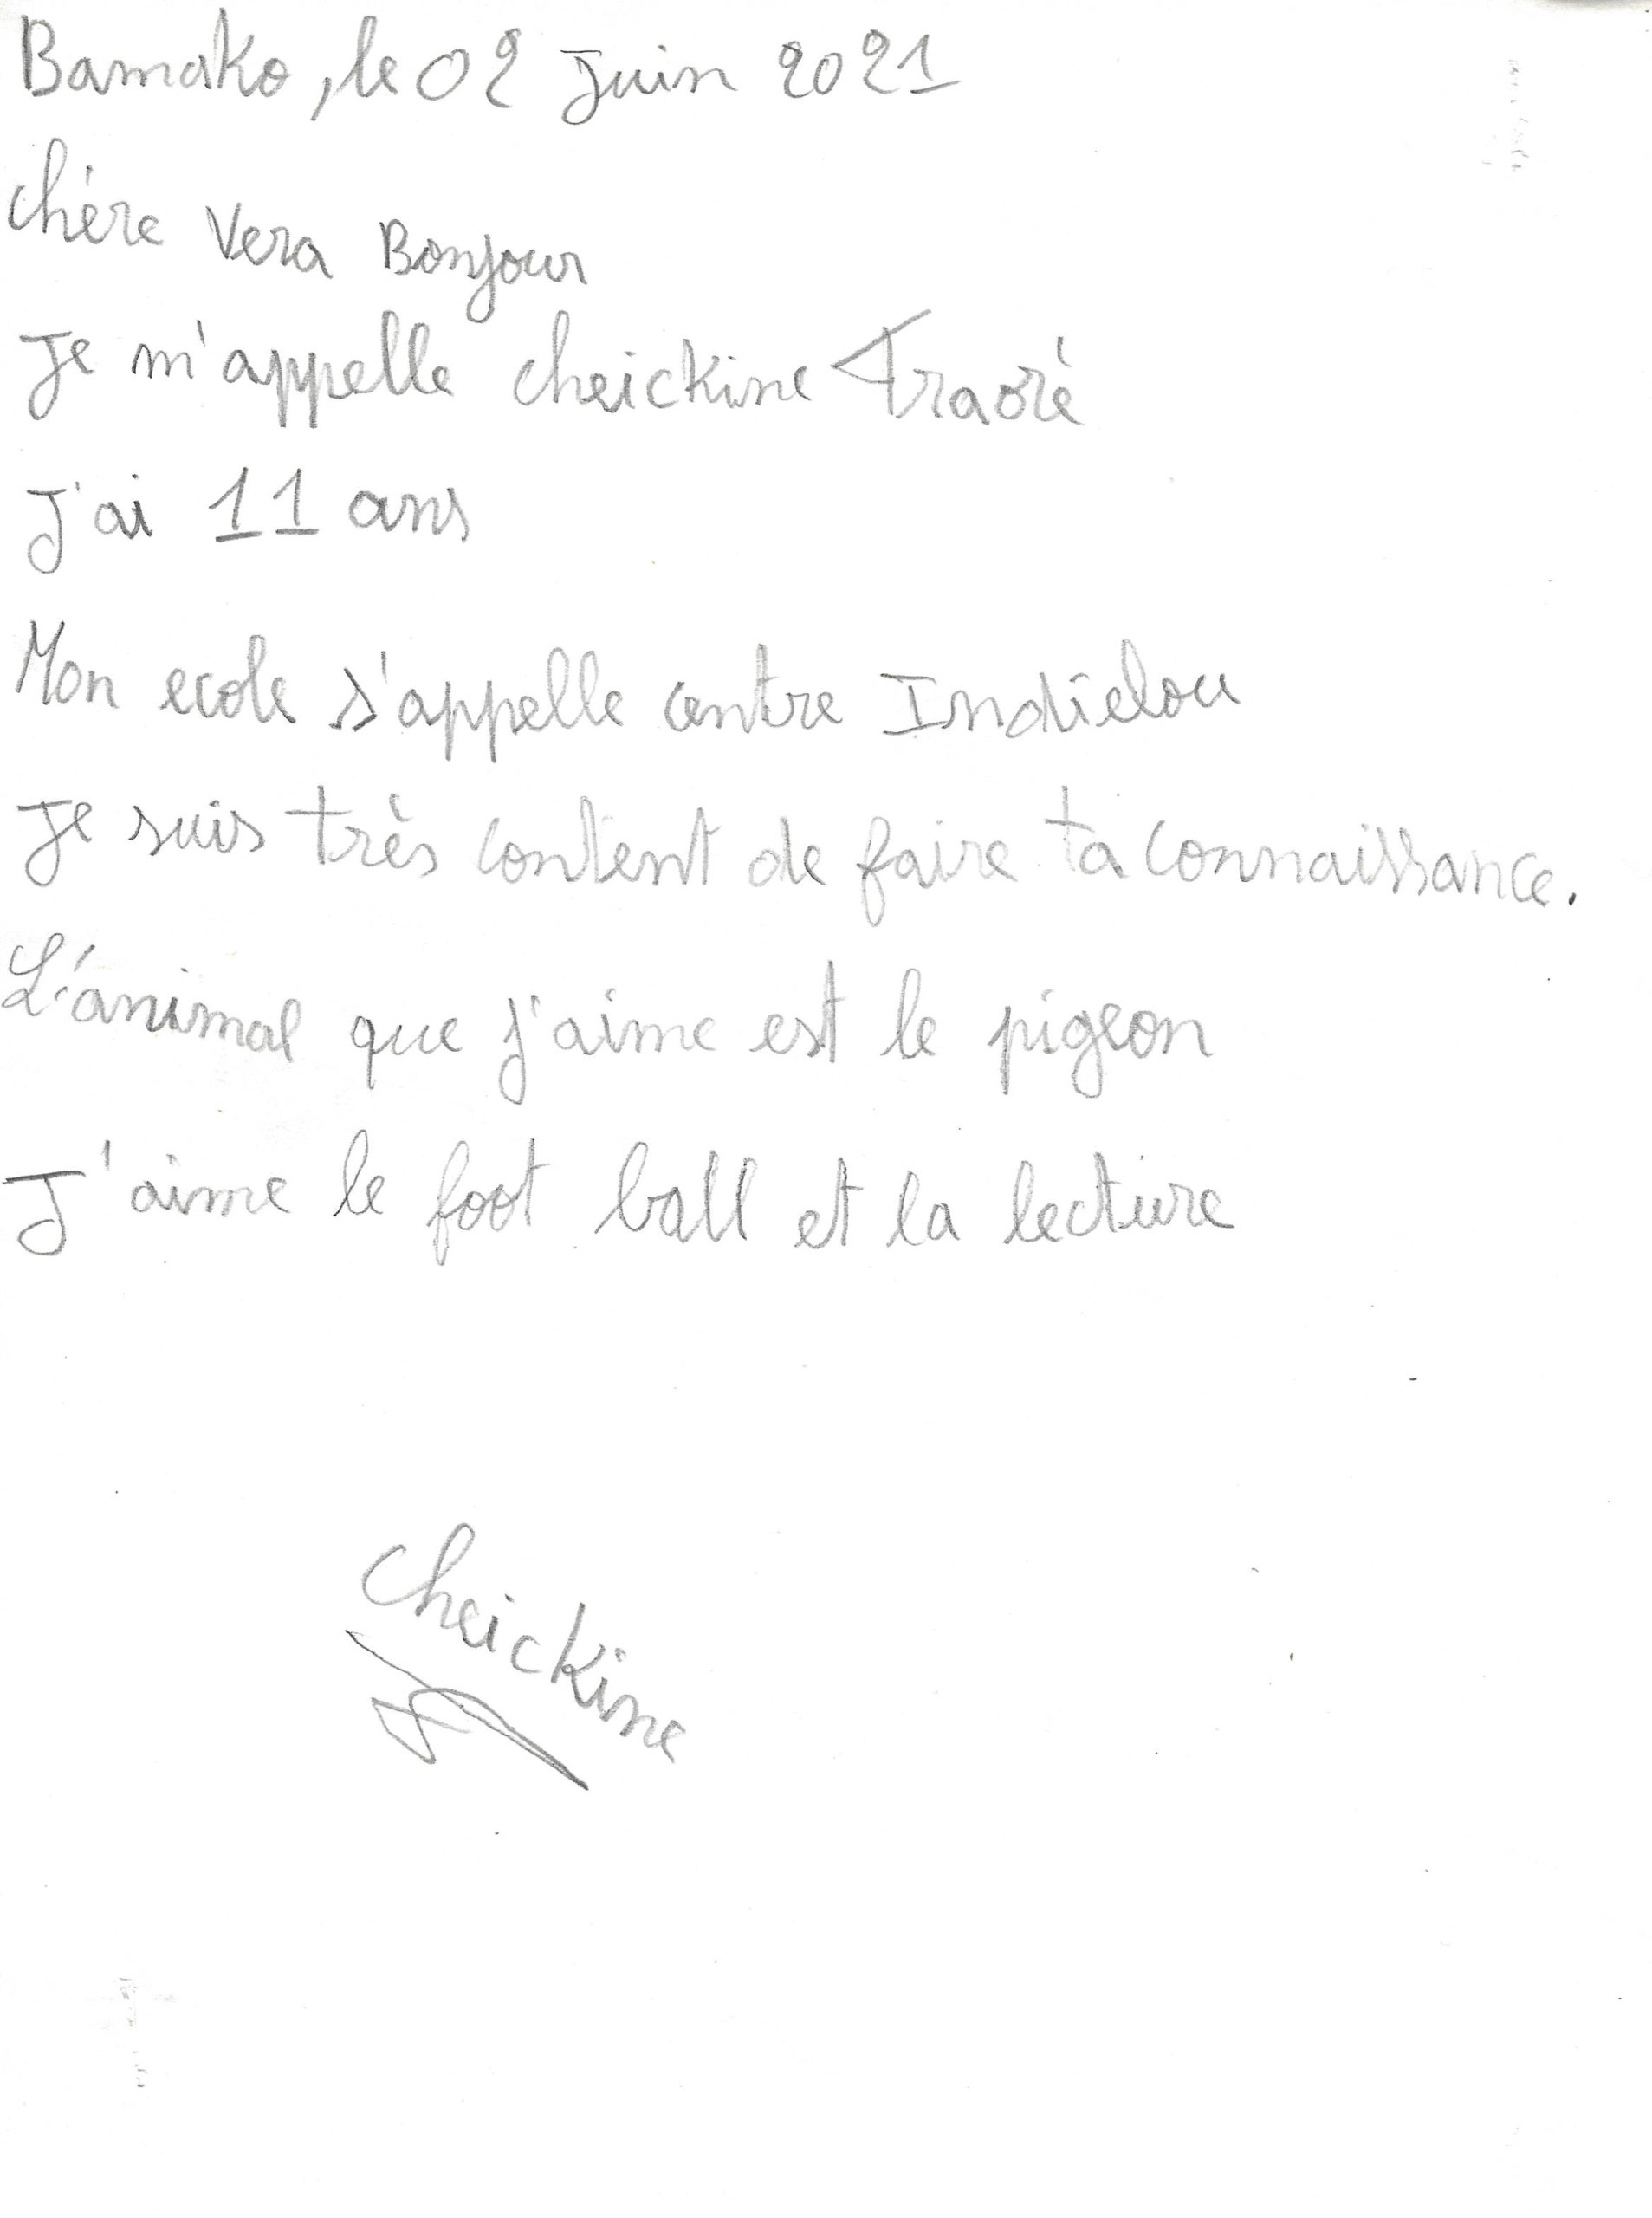 Bamako, le 02 Juin 2021
chère Vera Bonjour
Je m'appelle cheickine Traoré
J'ai 11 ans
Mon ecole s'appelle centre Indielou
Je suis très content de faire ta connaissance.
L'animal que j'aime est le pigeon
J'aime le foot ball et la lecture
cheickine